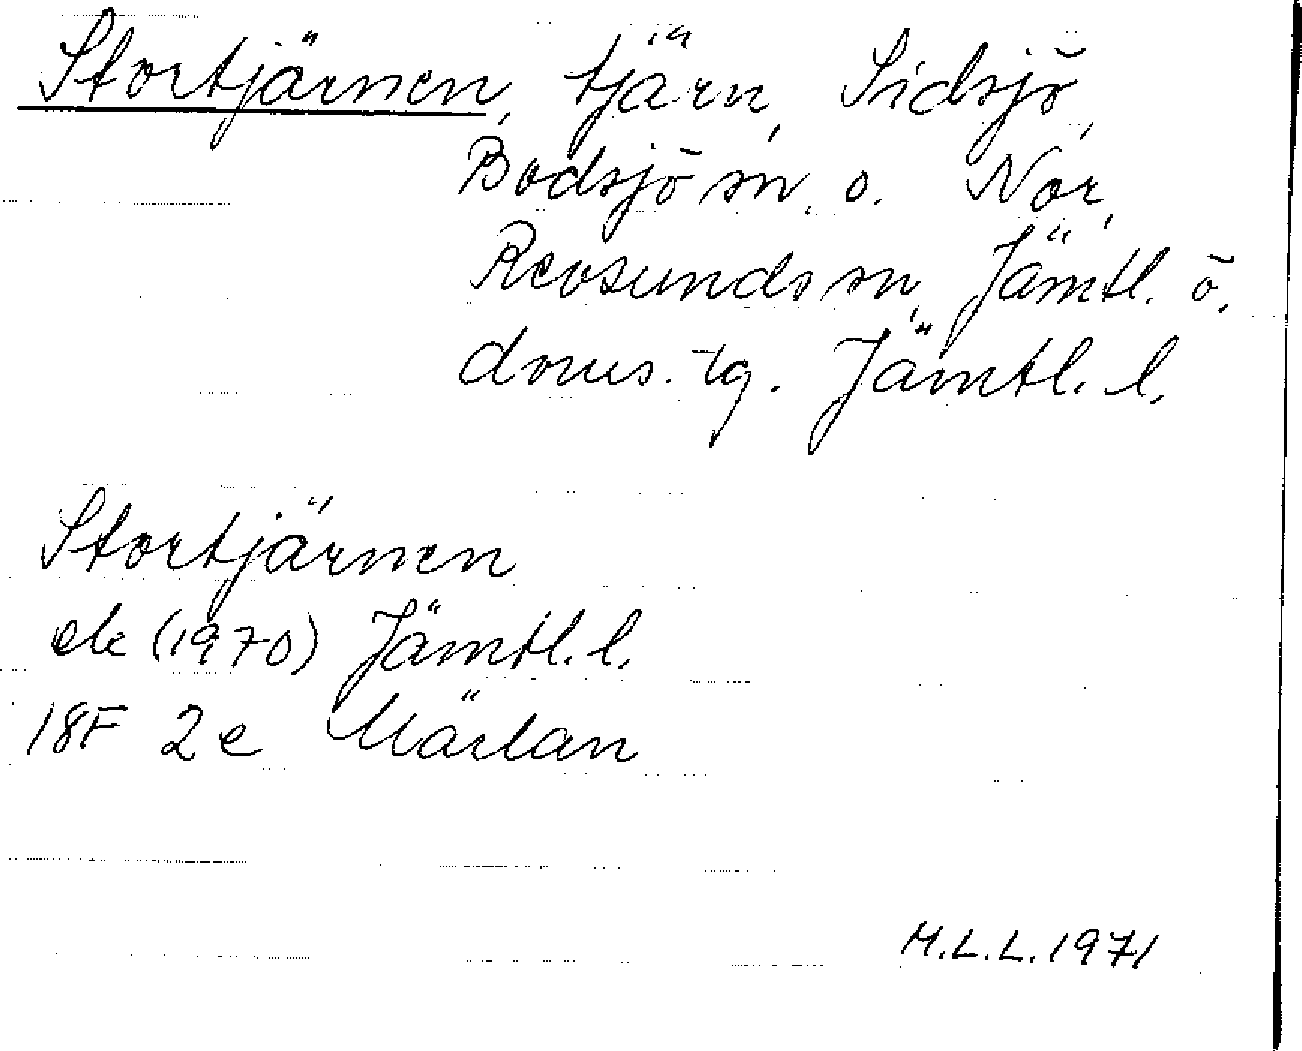 Stortjärnen, tjärn, Sidsjö,
Bodsjö sn. o. Nor,
Revsunds sn, Jämtl. ö.
doms. tg. Jämtl. l.
Stortjärnen
ek (1970) Jämtl. l.
18F 2e Märlan
M.L.L. 1971